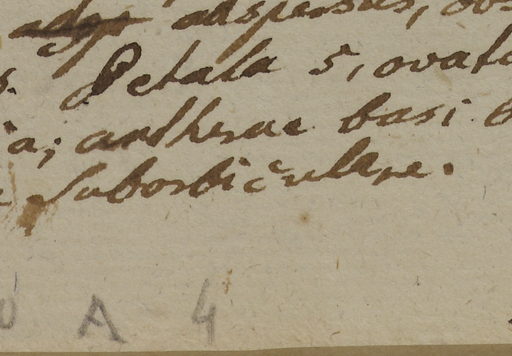 adspersus,
Petala 5, ovat
antherae basi
suborbiculare.
A 4